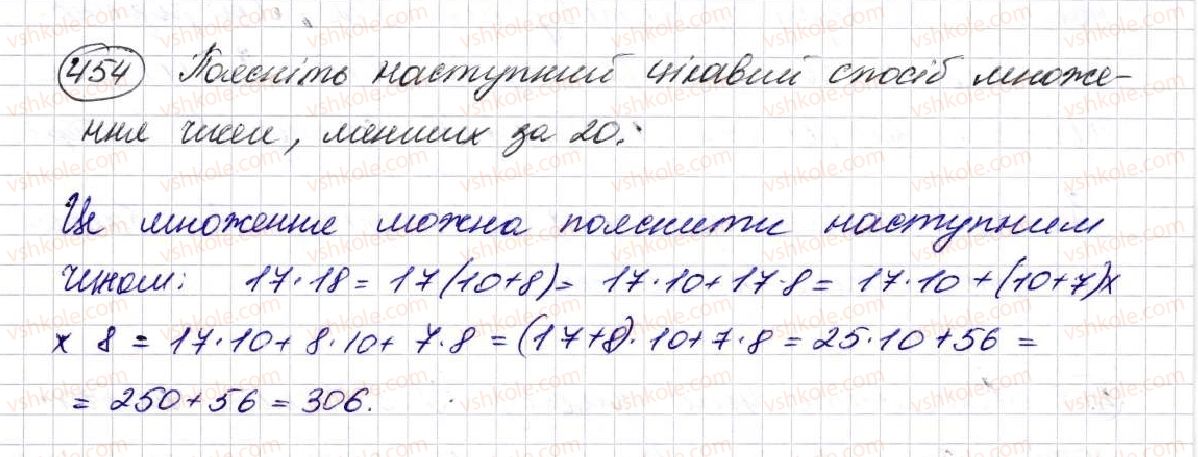 454 Поясніть наступний цікавий спосіб множе-
ння чисел, менших за 20.
Це множення можна пояснити наступним
чином: 17·18 = 17(10+8) = 17·10+17·8 = 17·10+(10+7)×
× 8 = 17·10+8·10+7·8 = (17+8)·10+7·8 = 25·10+56 =
= 250+56 = 306.